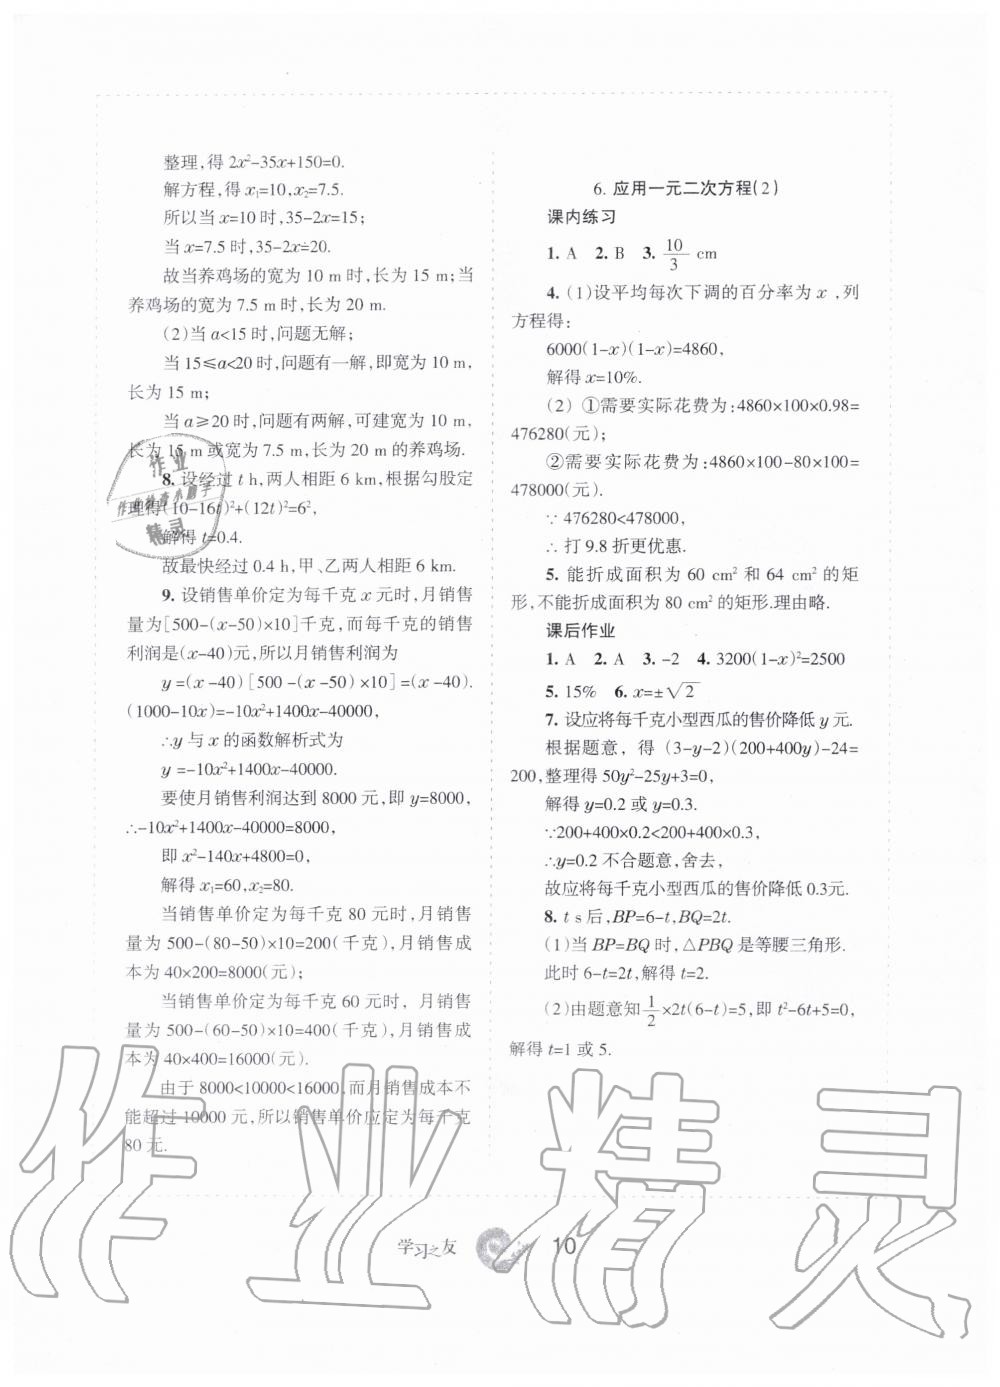 整理,得 2x²-35x+150=0.
解方程,得 x₁=10,x₂=7.5.
所以当 x=10 时,35-2x=15;
当 x=7.5 时,35-2x=20.
故当养鸡场的宽为 10 m 时,长为 15 m;当
养鸡场的宽为 7.5 m 时,长为 20 m.
(2)当 a<15 时,问题无解;
当 15≤a<20 时,问题有一解,即宽为 10 m,
长为 15 m;
当 a≥20 时,问题有两解,可建宽为 10 m,
长为 15 m 或宽为 7.5 m,长为 20 m 的养鸡场.
8. 设经过 t h,两人相距 6 km,根据勾股定
理得(10-16t)²+(12t)²=6²,
解得 t=0.4.
故最快经过 0.4 h,甲、乙两人相距 6 km.
9. 设销售单价定为每千克 x 元时,月销售
量为[500-(x-50)×10]千克,而每千克的销售
利润是(x-40)元,所以月销售利润为
y =(x -40)[500 -(x -50) ×10] =(x -40).
(1000-10x)=-10x²+1400x-40000,
∴y 与 x 的函数解析式为
y =-10x²+1400x-40000.
要使月销售利润达到 8000 元,即 y=8000,
∴-10x²+1400x-40000=8000,
即 x²-140x+4800=0,
解得 x₁=60,x₂=80.
当销售单价定为每千克 80 元时,月销售
量为 500-(80-50)×10=200(千克),月销售成
本为 40×200=8000(元);
当销售单价定为每千克 60 元时, 月销售
量为 500-(60-50)×10=400(千克),月销售成
本为 40×400=16000(元).
由于 8000<10000<16000,而月销售成本不
能超过 10000 元,所以销售单价应定为每千克
80 元.
6. 应用一元二次方程(2)
课内练习
1. A 2. B 3. 10/3 cm
4. (1)设平均每次下调的百分率为 x ,列
方程得:
6000(1-x)(1-x)=4860,
解得 x=10%.
(2) ①需要实际花费为:4860×100×0.98=
476280(元);
②需要实际花费为:4860×100-80×100=
478000(元).
∵ 476280<478000,
∴ 打 9.8 折更优惠.
5. 能折成面积为 60 cm² 和 64 cm² 的矩
形,不能折成面积为 80 cm² 的矩形.理由略.
课后作业
1. A 2. A 3. -2 4. 3200(1-x)²=2500
5. 15% 6. x=±√2
7. 设应将每千克小型西瓜的售价降低 y 元.
根据题意, 得 (3-y-2)(200+400y)-24=
200,整理得 50y²-25y+3=0,
解得 y=0.2 或 y=0.3.
∵200+400×0.2<200+400×0.3,
∴y=0.2 不合题意,舍去,
故应将每千克小型西瓜的售价降低 0.3元.
8. t s 后,BP=6-t,BQ=2t.
(1)当 BP=BQ 时,△PBQ 是等腰三角形.
此时 6-t=2t,解得 t=2.
(2)由题意知 1/2 ×2t(6-t)=5,即 t²-6t+5=0,
解得 t=1 或 5.
学习之友 10
作业
精灵
作业精灵